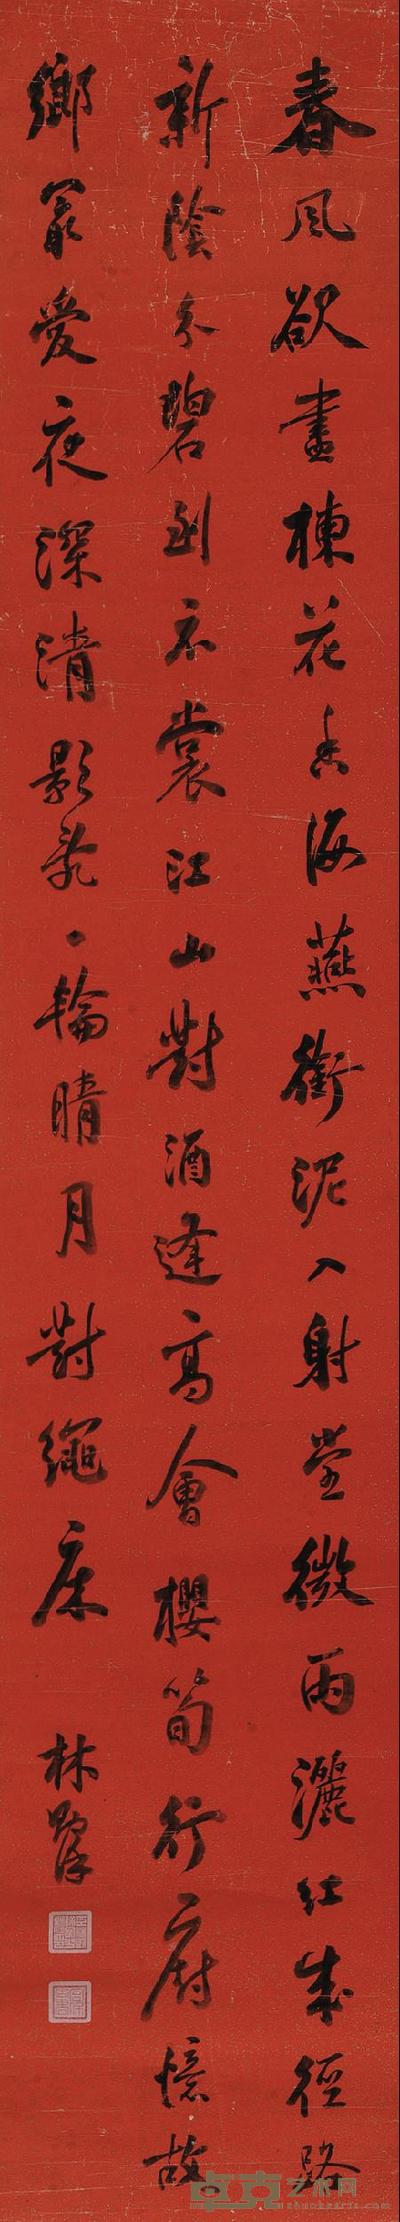 春風欲盡楝花香海燕銜泥入射堂微雨灑紅成徑路
新陰分碧到衣裳江山對酒逢高會櫻筍行廚憶故
鄉最愛夜深清影亂一輪晴月對繩床
林
卓克艺术网